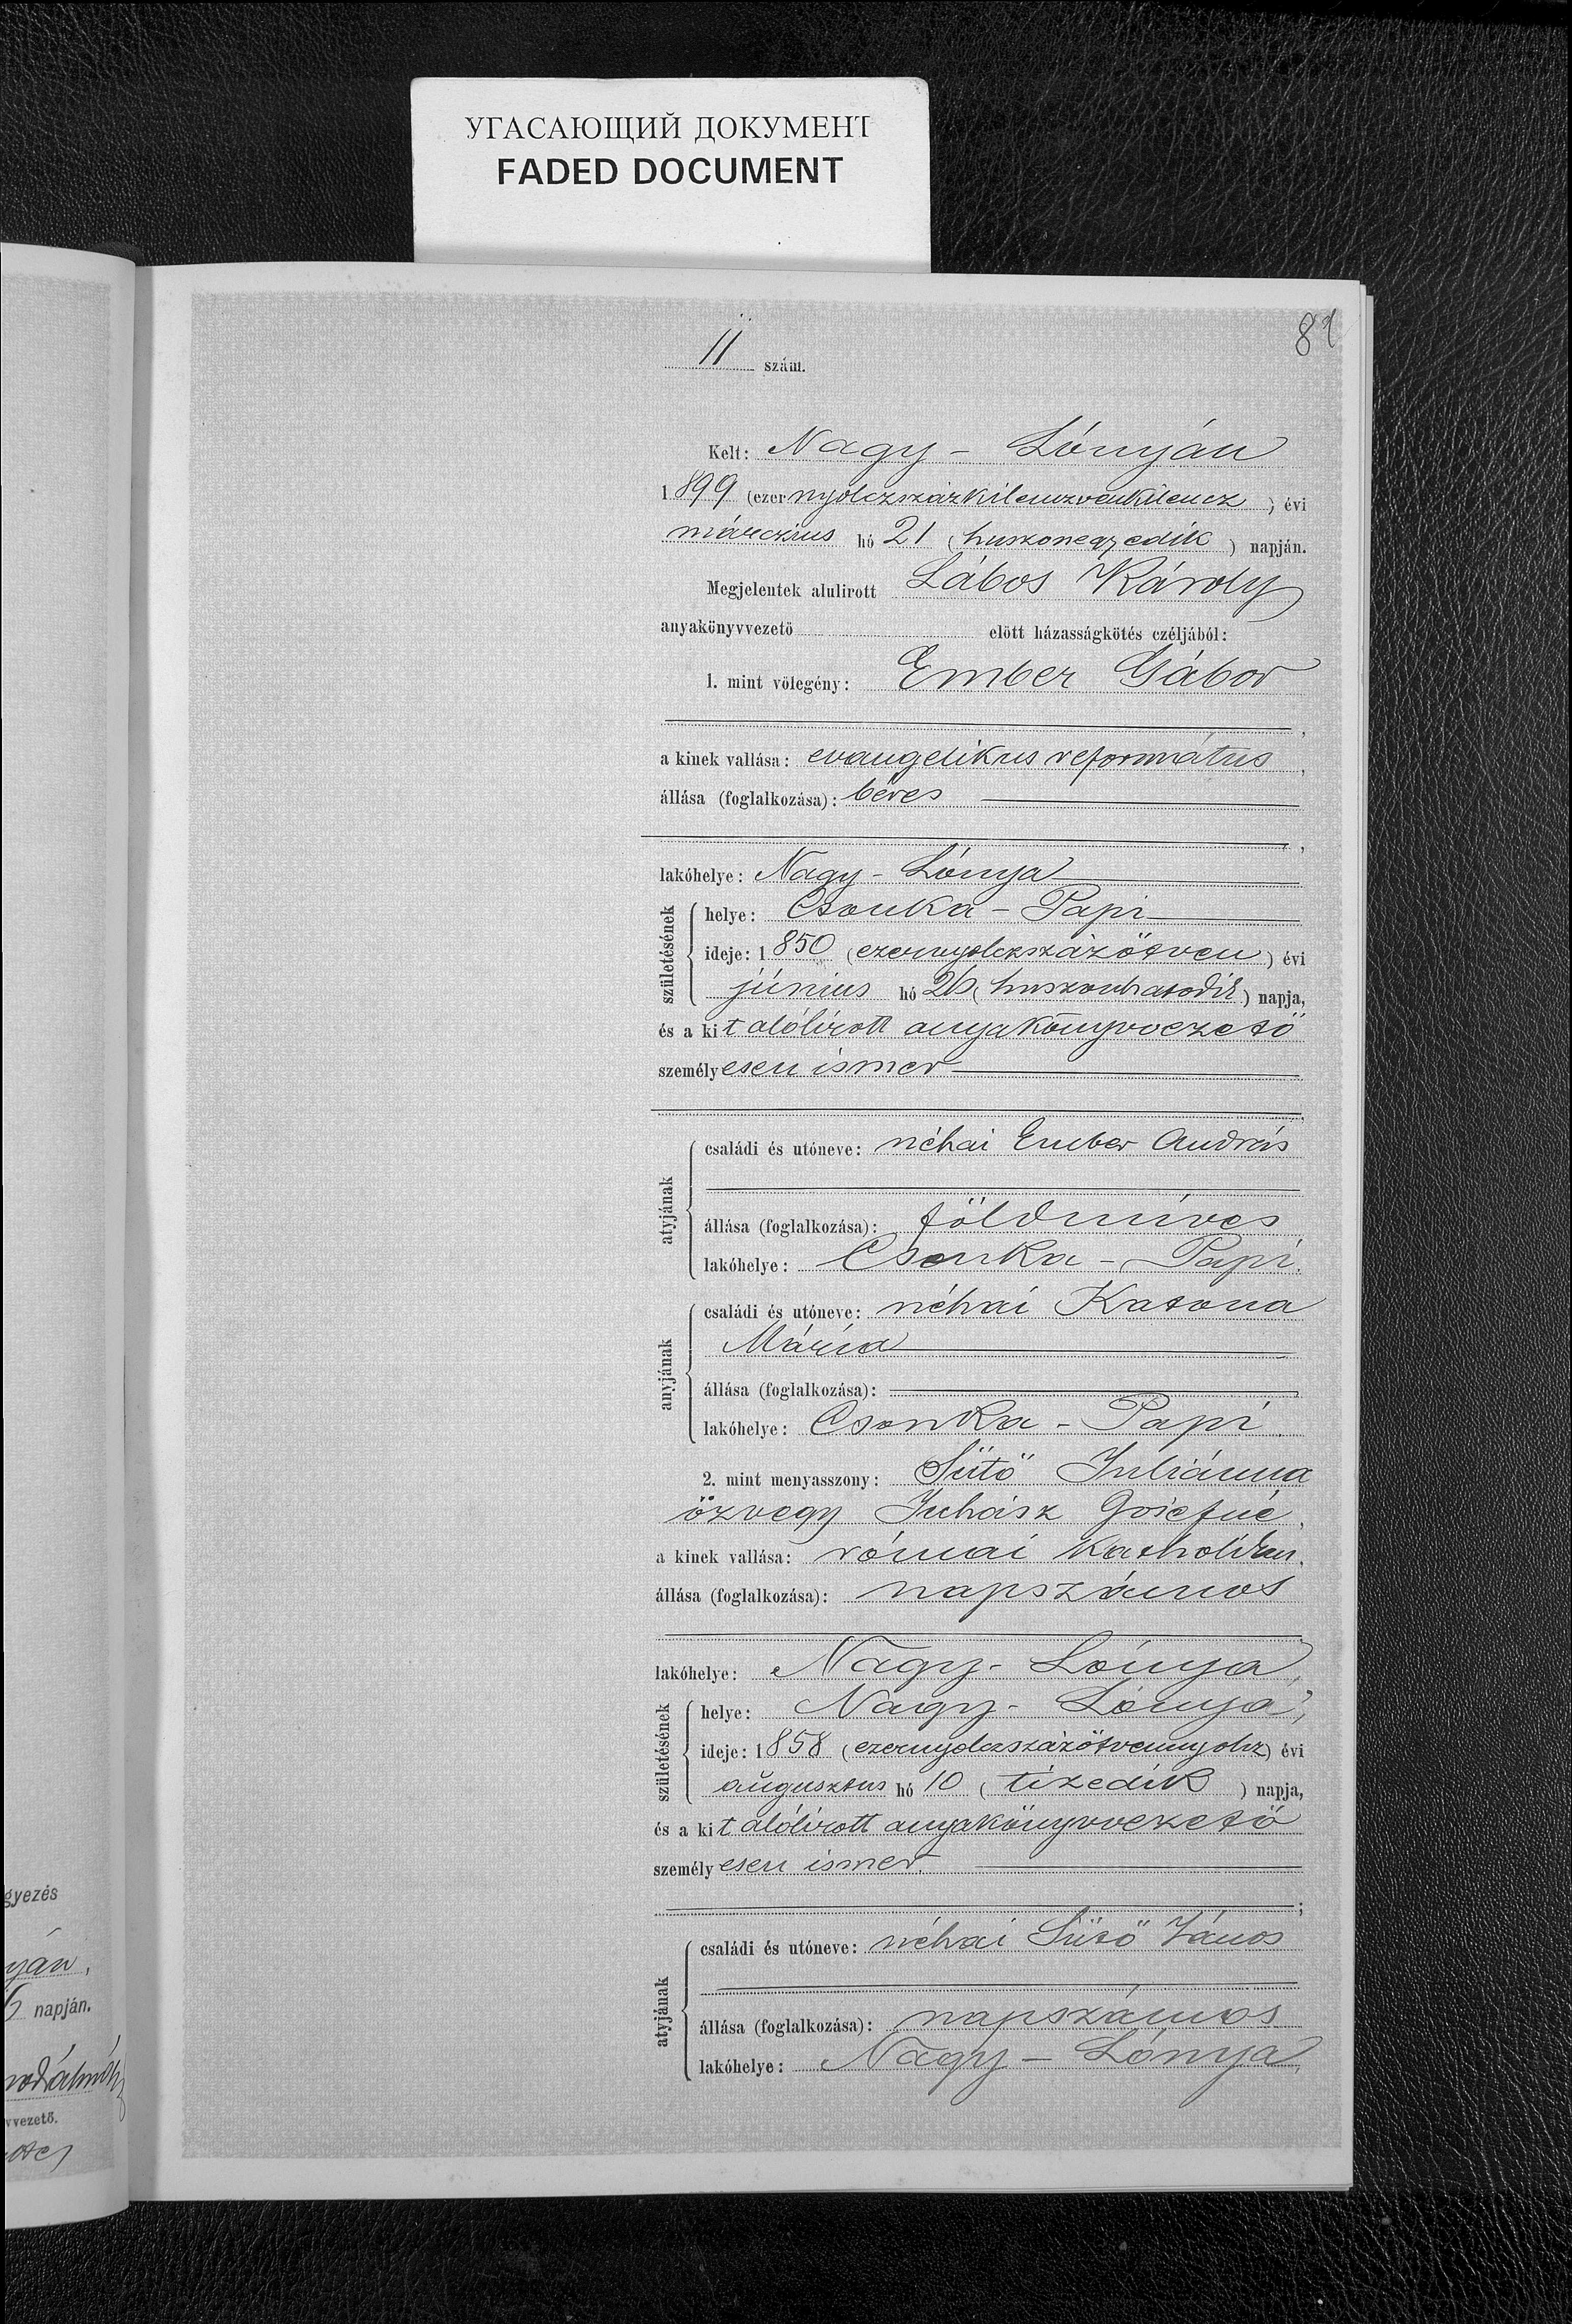 УГАСАЮЩИЙ ДОКУМЕНТ
FADED DOCUMENT
81
11 szám.
Kelt: Nagy-Lónyán
1899 (ezernyolczszázkilenczvenkilencz) évi
márczius hó 21 (huszonegyedik) napján.
Megjelentek alulirott Lábos Károly
anyakönyvvezető előtt házasságkötés czéljából:
1. mint vőlegény: Ember Gábor
a kinek vallása: evangelikus református,
állása (foglalkozása): béres
lakóhelye: Nagy-Lónya
születésének
helye: Csonka-Papi
ideje: 1850 (ezernyolczszázötven) évi
június hó 26 (huszonhatodik) napja,
és a kit alólirott anyakönyvvezető
személyesen ismer
atyjának
családi és utóneve: néhai Ember András
állása (foglalkozása): földmíves
lakóhelye: Csonka-Papi.
anyjának
családi és utóneve: néhai Katona
Mária
állása (foglalkozása):
lakóhelye: Csonka-Papi.
2. mint menyasszony: Sütő Juliánna
özvegy Juhász Józsefné,
a kinek vallása: római katholikus,
állása (foglalkozása): napszámos
lakóhelye: Nagy-Lónya,
születésének
helye: Nagy-Lónya,
ideje: 1858 (ezernyolczszázötvennyolcz) évi
augusztus hó 10 (tizedik) napja,
és a kit alólirott anyakönyvvezető
személyesen ismer.
atyjának
családi és utóneve: néhai Sütő János
állása (foglalkozása): napszámos
lakóhelye: Nagy-Lónya,
gyezés
yán,
6 napján.
vvezető.